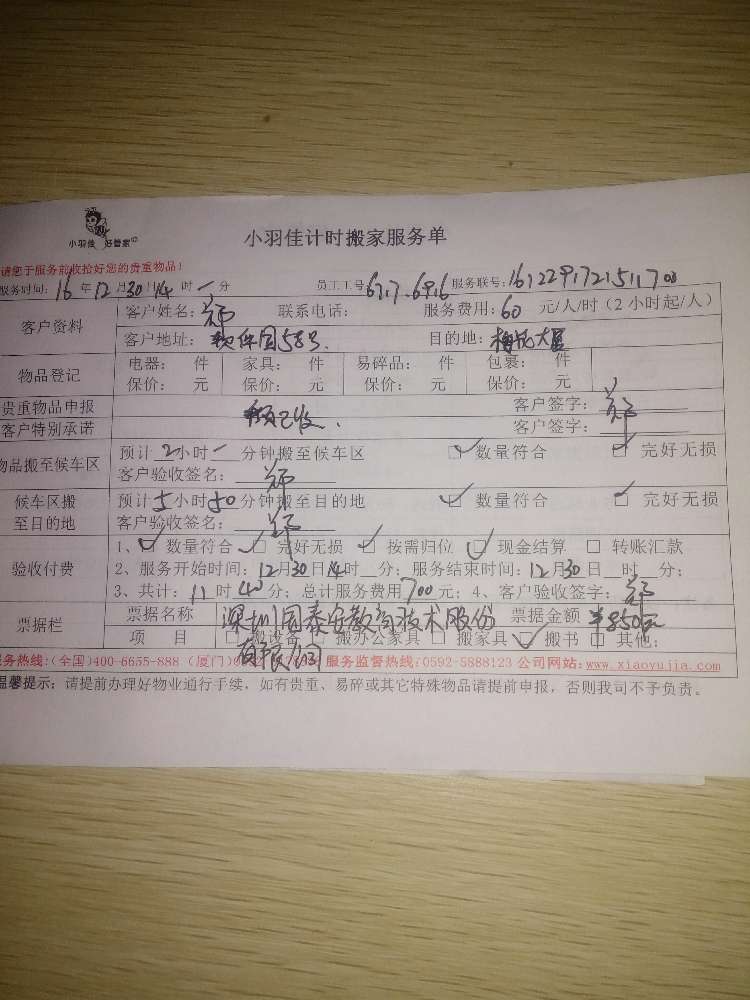 小羽佳 好管家
小羽佳计时搬家服务单
请您于服务前收拾好您的贵重物品!
服务时间: 16 年 12 月 30 日 14 时 一 分 员工工号 617.6916 服务联号: 1612291721511700
客户资料 客户姓名: 郑 联系电话: 服务费用: 60 元/人/时(2小时起/人)
客户地址: 软件园58号. 目的地: 大厦
物品登记 电器: 件 家具: 件 易碎品: 件 包裹: 件
保价: 元 保价: 元 保价: 元 保价: 元
贵重物品申报 已收. 客户签字: 郑
客户特别承诺 客户签字:
物品搬至候车区 预计 2 小时 一 分钟搬至候车区 ☑ 数量符合 ☑ 完好无损
客户验收签名: 郑
候车区搬至目的地 预计 5 小时 50 分钟搬至目的地 ☑ 数量符合 ☑ 完好无损
客户验收签名: 郑
验收付费 1、☑ 数量符合 ☑ 完好无损 ☑ 按需归位 ☑ 现金结算 □ 转账汇款
2、服务开始时间: 12 月 30 日 14 时 分; 服务结束时间: 12 月 30 日 时 分;
3、共计: 11 时 40 分; 总计服务费用 700 元; 4、客户验收签字: 郑
票据栏 票据名称 深圳国泰安教育技术股份有限公司 票据金额 ¥850元
项 目 搬设备 □ 搬办公家具 □ 搬家具 ☑ 搬书 □ 其他:
服务热线:(全国)400-6655-888 (厦门) 服务监督热线:0592-5888123 公司网站:www.xiaoyujia.com
温馨提示: 请提前办理好物业通行手续, 如有贵重、易碎或其它特殊物品请提前申报, 否则我司不予负责。